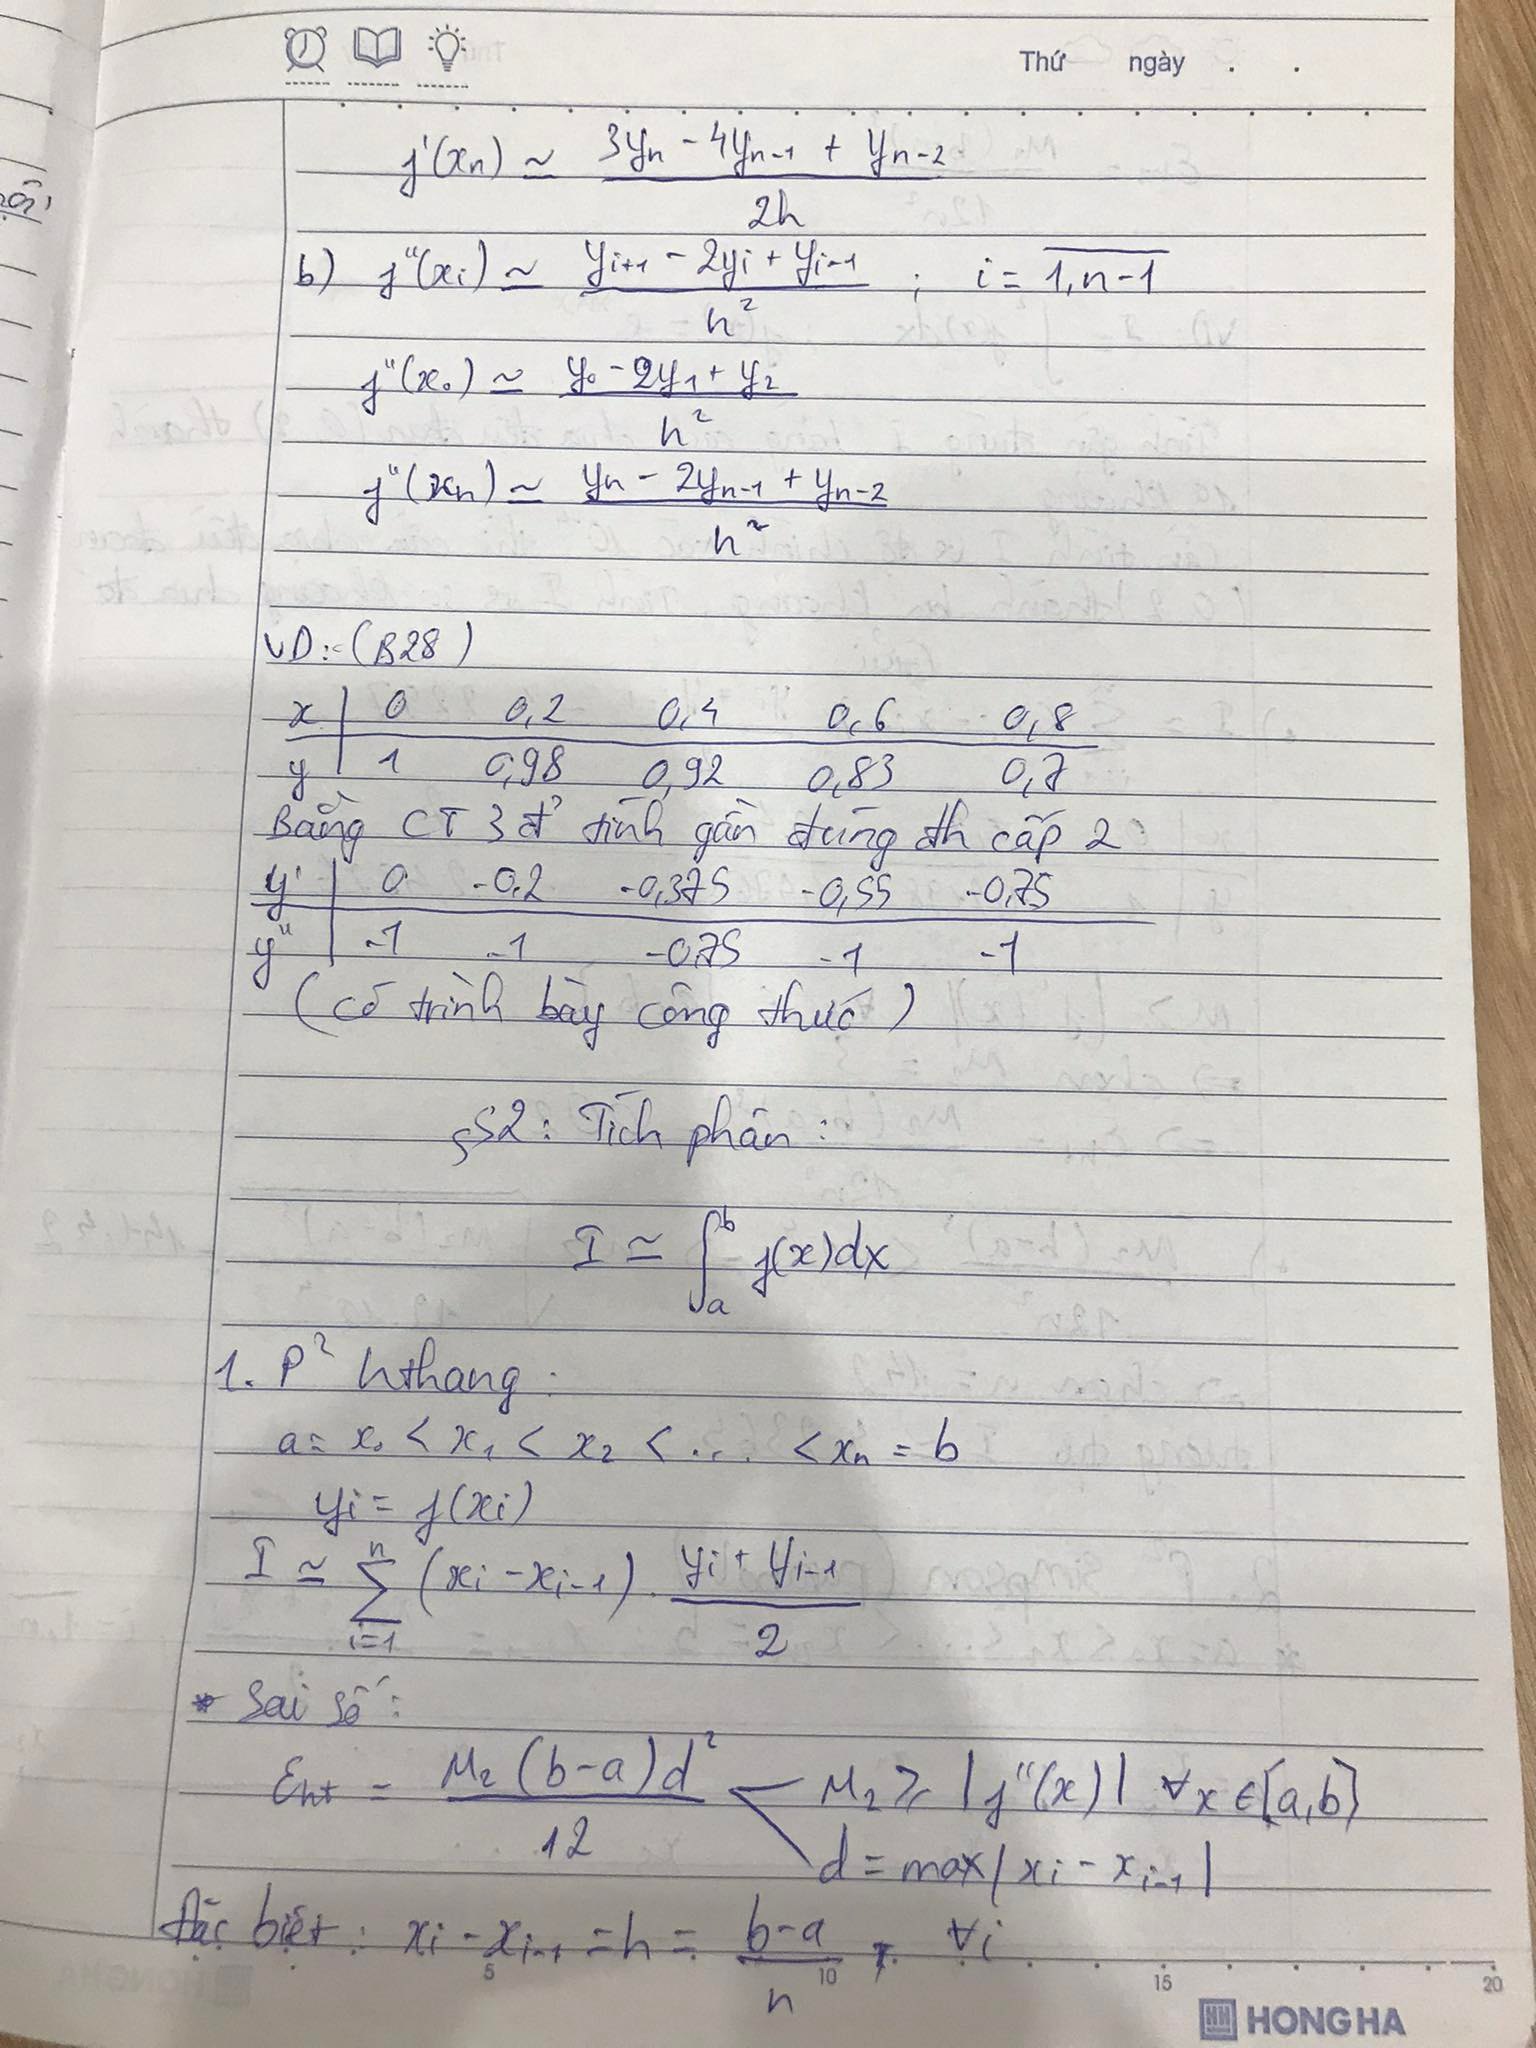 Thứ ngày . .
f'(xn) ≃ (3yn - 4yn-1 + yn-2) / 2h
b) f''(xi) ≃ (yi+1 - 2yi + yi-1) / h² ; i = 1,n-1
f''(x0) ≃ (y0 - 2y1 + y2) / h²
f''(xn) ≃ (yn - 2yn-1 + yn-2) / h²
VD: (B28)
x | 0 0,2 0,4 0,6 0,8
y | 1 0,98 0,92 0,83 0,7
Bằng CT 3 đ' tính gần đúng đh cấp 2
y' | 0 -0,2 -0,375 -0,55 -0,75
y'' | -1 -1 -0,75 -1 -1
(có trình bày công thức)
§2: Tích phân:
I ≃ ∫ₐᵇ f(x)dx
1. P² hthang:
a = x0 < x1 < x2 < ... < xn = b
yi = f(xi)
I ≃ Σ_{i=1}^{n} (xi - xi-1) . (yi + yi-1) / 2
* Sai số:
εht = M2 (b-a) d² / 12
M2 ⩾ |f''(x)| ∀x ∈ [a,b]
d = max |xi - xi-1|
Đặc biệt: xi - xi-1 = h = (b-a) / n , ∀i
5 10 15 20
HONG HA